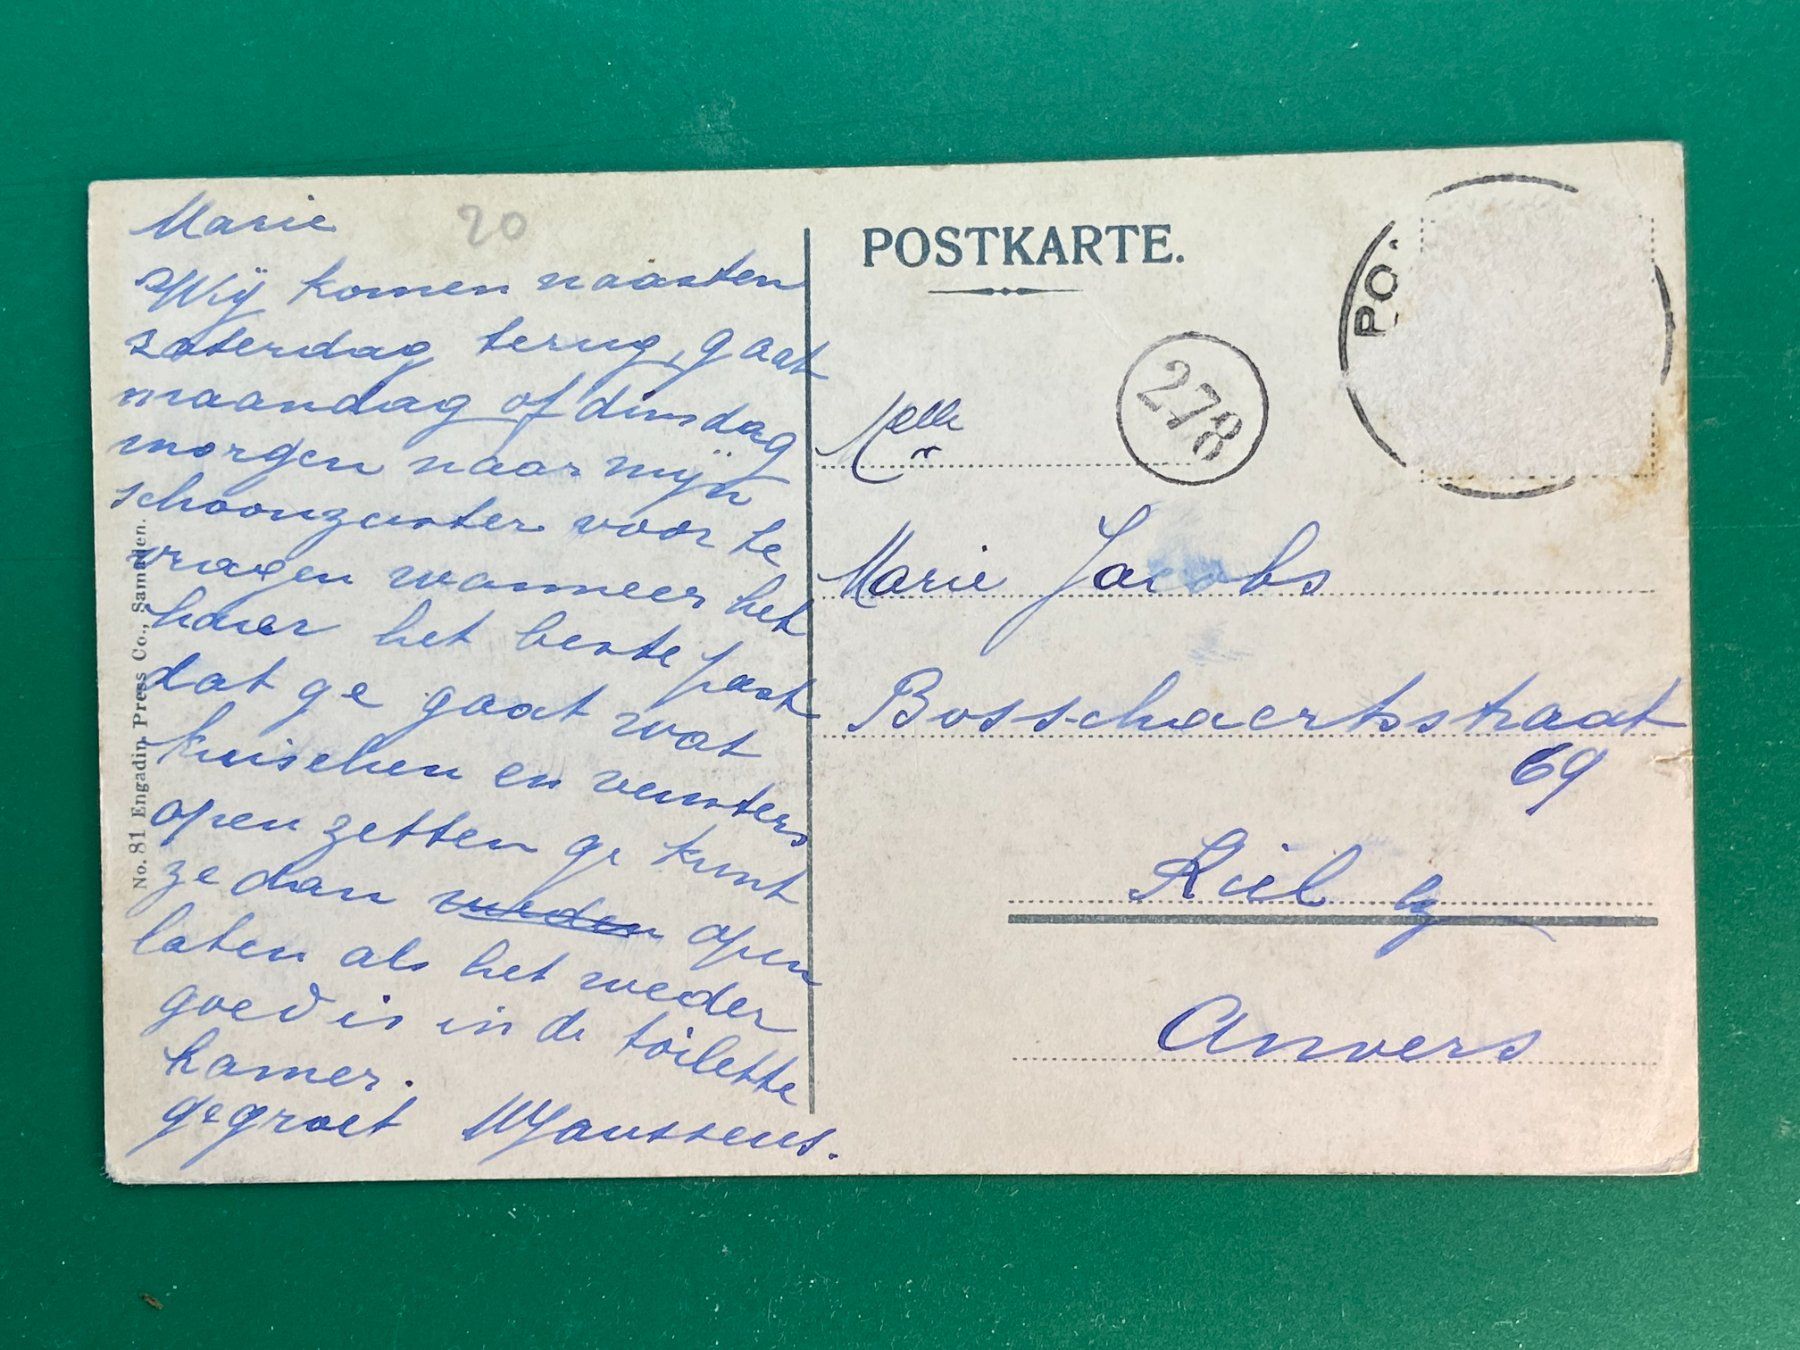 Marie
20
Wij komen naasten
zaterdag terug, gaat
maandag of dinsdag
morgen naar mijn
schoonzuster voor te
vragen wanneer het
haar het beste past
dat ge gaat wat
kuischen en vensters
open zetten ge kunt
ze dan open
laten als het weder
goed is in de toilette
kamer.
gegroet MJanssens.
No. 81 Engadin Press Co., Samaden.
POSTKARTE.
PO
278
Melle
Marie Jacobs
Bosschaertsstraat
69
Kiel by
Anvers